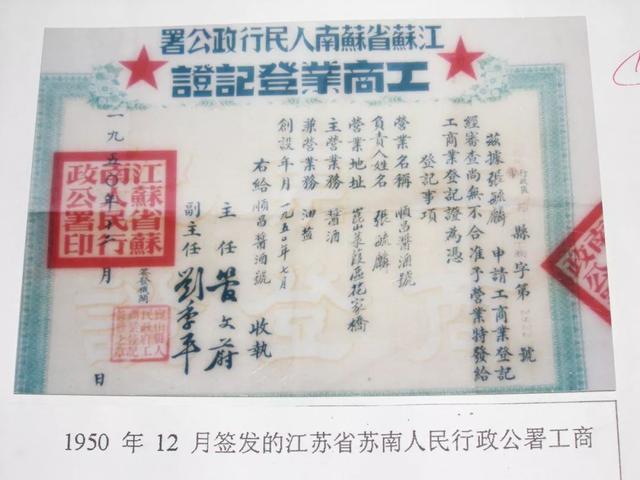 江蘇省蘇南人民行政公署
工商業登記證
縣 字第 號
茲據張毓麟 申請工商業登記
經審查尚無不合准予營業特發給
工商業登記證為憑
登記事項
營業名稱 順昌醬酒號
負責人姓名 張毓麟
營業地址 崑山菉葭區花家橋
主營業務 醬酒
兼營業務 油鹽
創設年月 一九五〇年七月
右給順昌醬酒號 收執
主任 管文蔚
副主任 劉季平
一九五〇年十二月 日
江蘇省蘇南人民行政公署印
1950 年 12 月签发的江苏省苏南人民行政公署工商